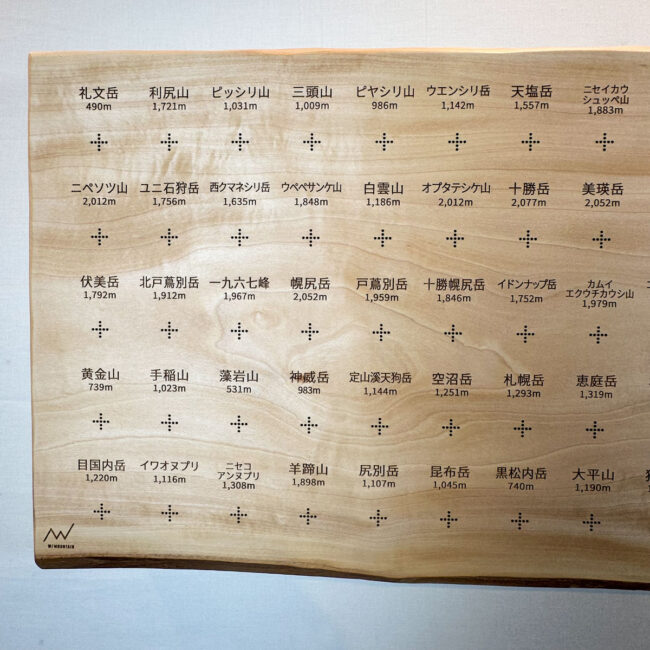 礼文岳 利尻山 ピッシリ山 三頭山 ピヤシリ山 ウエンシリ岳 天塩岳 ニセイカウ
シュッペ山
490m 1,721m 1,031m 1,009m 986m 1,142m 1,557m 1,883m
ニペソツ山 ユニ石狩岳 西クマネシリ岳 ウペペサンケ山 白雲山 オプタテシケ山 十勝岳 美瑛岳
2,012m 1,756m 1,635m 1,848m 1,186m 2,012m 2,077m 2,052m
伏美岳 北戸蔦別岳 一九六七峰 幌尻岳 戸蔦別岳 十勝幌尻岳 イドンナップ岳 カムイ
エクウチカウシ山
1,792m 1,912m 1,967m 2,052m 1,959m 1,846m 1,752m 1,979m
黄金山 手稲山 藻岩山 神威岳 定山渓天狗岳 空沼岳 札幌岳 恵庭岳
739m 1,023m 531m 983m 1,144m 1,251m 1,293m 1,319m
目国内岳 イワオヌプリ ニセコ
アンヌプリ 羊蹄山 尻別岳 昆布岳 黒松内岳 大平山
1,220m 1,116m 1,308m 1,898m 1,107m 1,045m 740m 1,190m